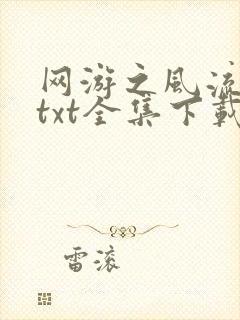 网游之风流
txt全集下载
雷滚